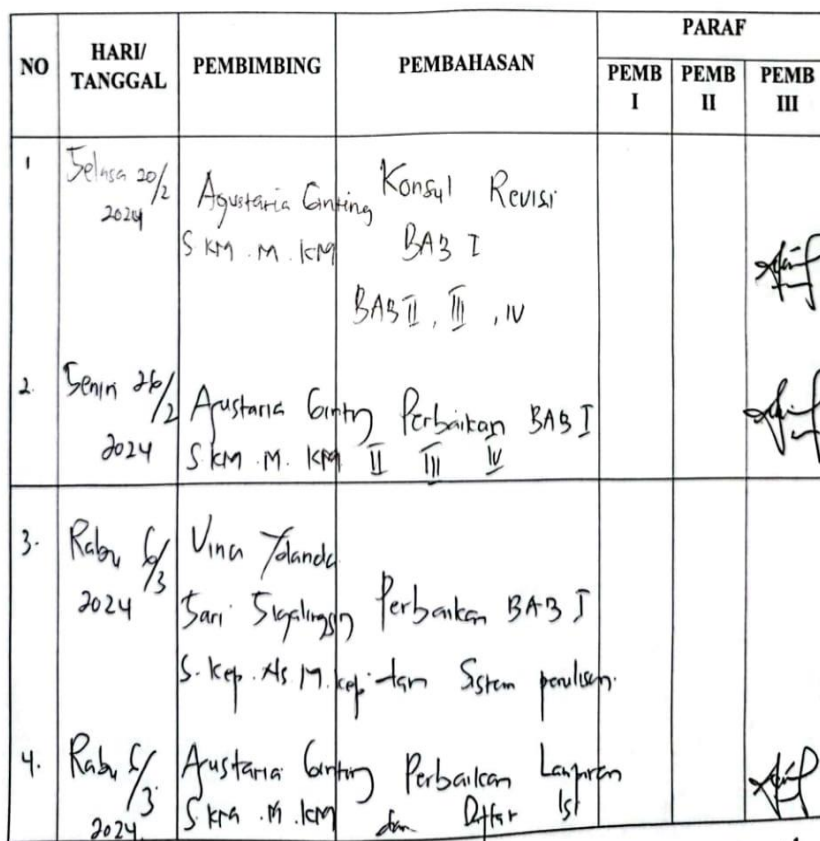 NO HARI/ TANGGAL PEMBIMBING PEMBAHASAN PARAF
PEMB I PEMB II PEMB III
1 Selasa 20/2 2024 Agustaria Ginting S KM . M . KM Konsul Revisi BAB I BAB II , III , IV
2. Senin 26/2 2024 Agustaria Ginting S.KM . M . KM Perbaikan BAB I II III IV
3. Rabu 6/3 2024 Vina Yolanda Sari Sigalingging S. Kep. Ns M. Kep Perbaikan BAB I dan Sistem penulisan.
4. Rabu 6/3 2024 Agustaria Ginting S.KM . M . KM Perbaikan Lampiran dan Daftar Isi